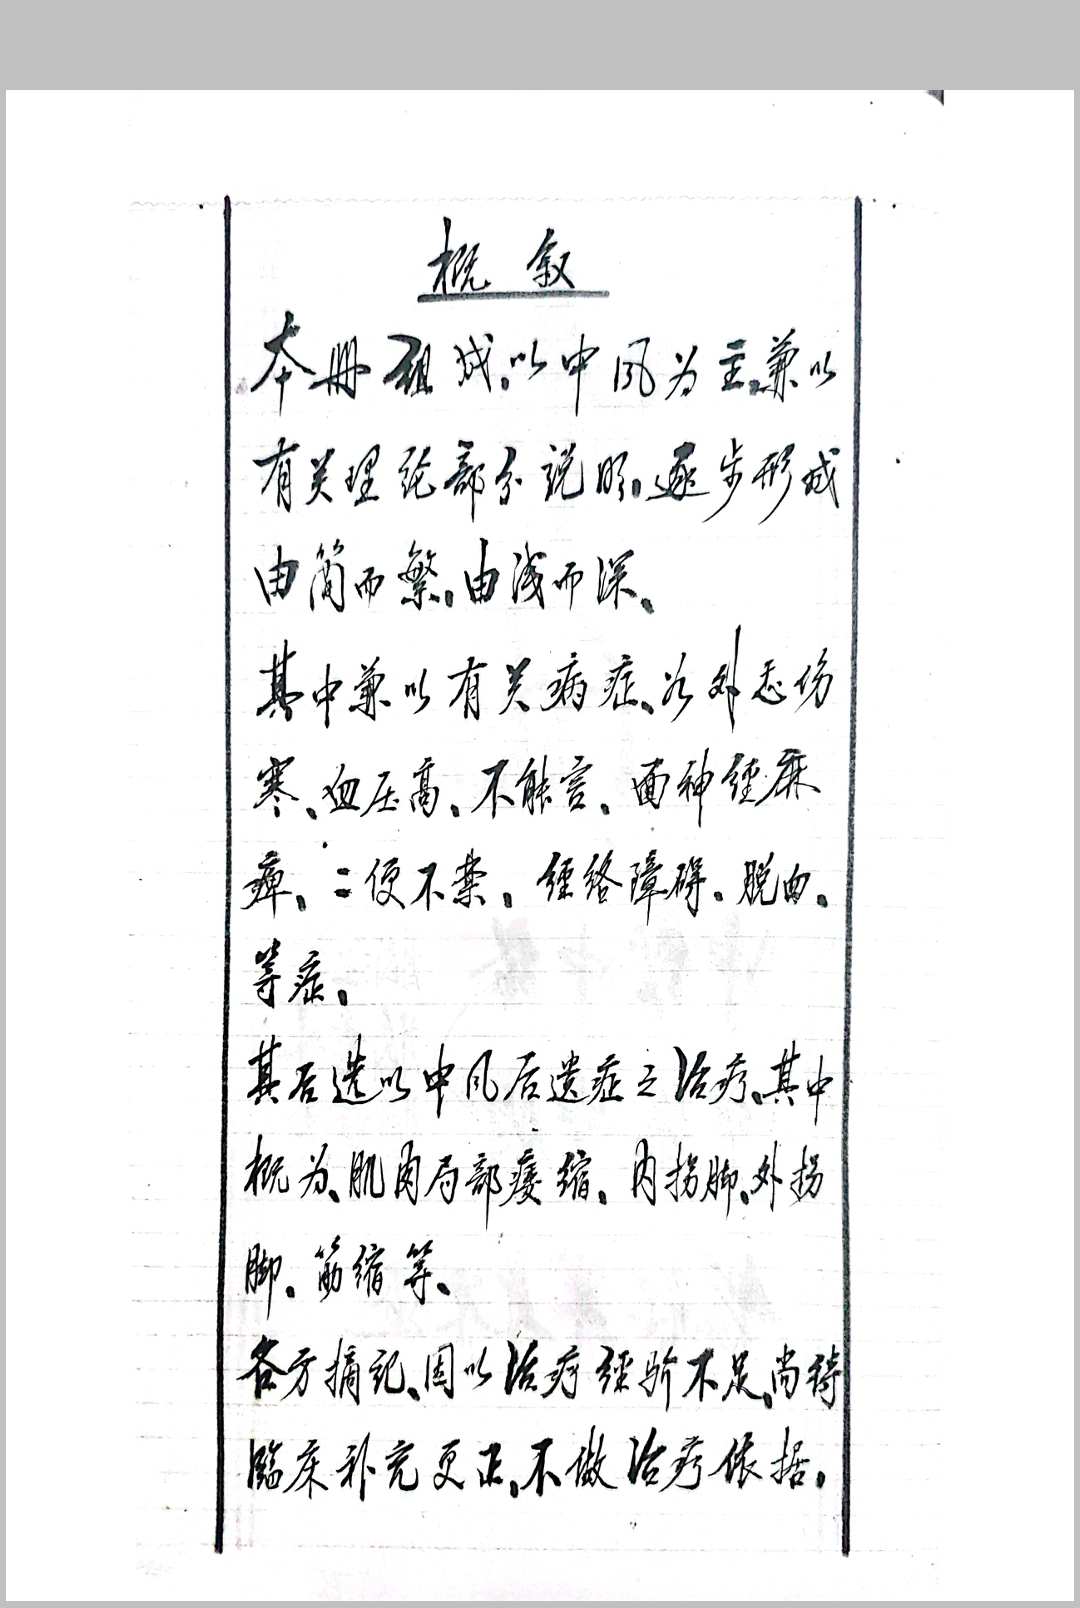 概叙
本册组成。以中风为主。兼以
有关理论部分说明。逐步形成
由简而繁。由浅而深、
其中兼以有关病症、如外感伤
寒、血压高、不能言、面神经麻
痹、二便不禁。经络障碍。脱肛。
等症。
其后选以中风后遗症之治疗、其中
概为、肌肉局部痿缩、内拐脚、外拐
脚。筋缩等、
各方摘记、因以治疗经验不足、尚待
临床补充更正、不做治疗依据。